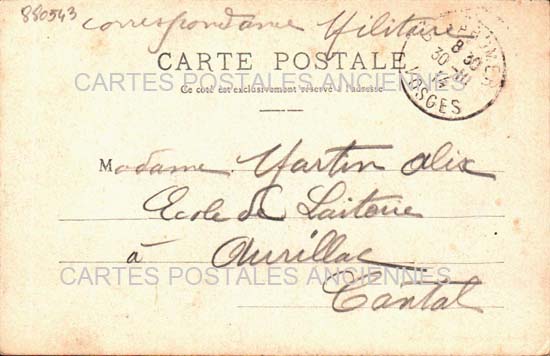 880543
correspondance Militaire
CARTE POSTALE
CARTES POSTALES ANCIENNES
Ce côté est exclusivement réservé à l'adresse
8 30
30-10
14
VOSGES
Madame Martin Alix
Ecole de Laiterie
à Aurillac
CARTES POSTALES ANCIENNES
Cantal